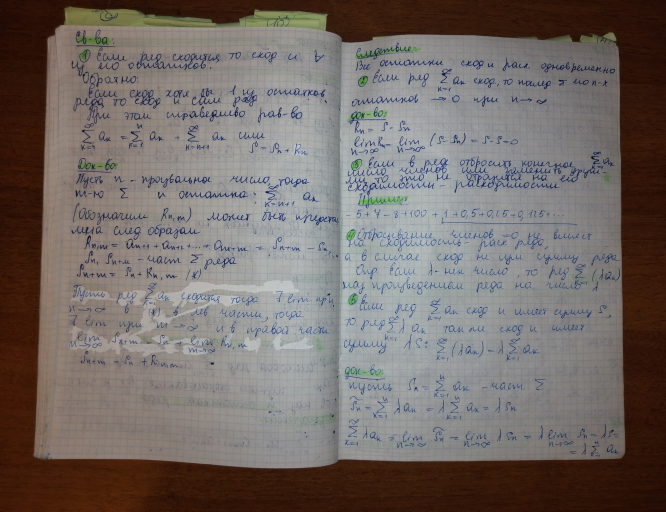 Св-ва:
① Если ряд сходится то сход и ∀
из его остатков.
Обратно:
Если сход хотя бы 1 из остатков
ряда то сход и сам ряд
При этом справедливо рав-во
∑_{k=1}^{∞} aₖ = ∑_{k=1}^{n} aₖ + ∑_{k=n+1}^{∞} aₖ или
S = Sₙ + Rₙ
Док-во:
Пусть n - произвольное число, тогда
m-ю Σ и остатка ∑_{k=n+1}^{∞} aₖ
(Обозначим Rₙ,ₘ) может быть
след образом
Rₙ,ₘ = aₙ₊₁ + aₙ₊₂ + ... + aₙ₊ₘ = Sₙ₊ₘ - Sₙ
Sₙ, Sₙ₊ₘ - част Σ ряда
Sₙ₊ₘ = Sₙ + Rₙ,ₘ (*)
Пусть ряд ∑ aₖ сходится тогда ∃ lim при
в левой части, тогда
∃ lim при m→∞ и в правой части
Sₙ₊ₘ = Sₙ + lim_{m→∞} Rₙ,ₘ
Sₙ₊ₘ = Sₙ + Rₙ,ₘ
Следствие:
Все остатки сход и расх одновременно
② Если ряд ∑_{k=1}^{∞} aₖ сход, то
остатков → 0 при n→∞
док-во:
Rₙ = S - Sₙ
lim_{n→∞} Rₙ = lim_{n→∞} (S - Sₙ) = S - S = 0
③ Если в ряде отбросить конечное ∑_{k=1}^{∞} aₖ
число членов или заменить
то это не отразится на его
сходимости - расходимости
Пример:
-5+4-8+100+1+0,5+0,25+0,125...
Отбрасывание членов → не влияет
на сходимость - расх ряда,
а в случае сход не при сумму ряда
Опр Если λ - нек число, то ряд ∑_{k=1}^{∞} (λaₖ)
наз произведением ряда на число λ
Если ряд ∑_{k=1}^{∞} aₖ сход и имеет сумму S,
то ряд ∑_{k=1}^{∞} λaₖ также сход и имеет
сумму λS: ∑_{k=1}^{∞} (λaₖ) = λ ∑_{k=1}^{∞} aₖ
док-во:
пусть Sₙ = ∑_{k=1}^{n} aₖ - част Σ
S̃ₙ = ∑_{k=1}^{n} λaₖ = λ ∑_{k=1}^{n} aₖ = λSₙ
∑_{k=1}^{∞} λaₖ = lim_{n→∞} S̃ₙ = lim_{n→∞} λSₙ = λ lim_{n→∞} Sₙ = λS =
= λ ∑_{k=1}^{∞} aₖ